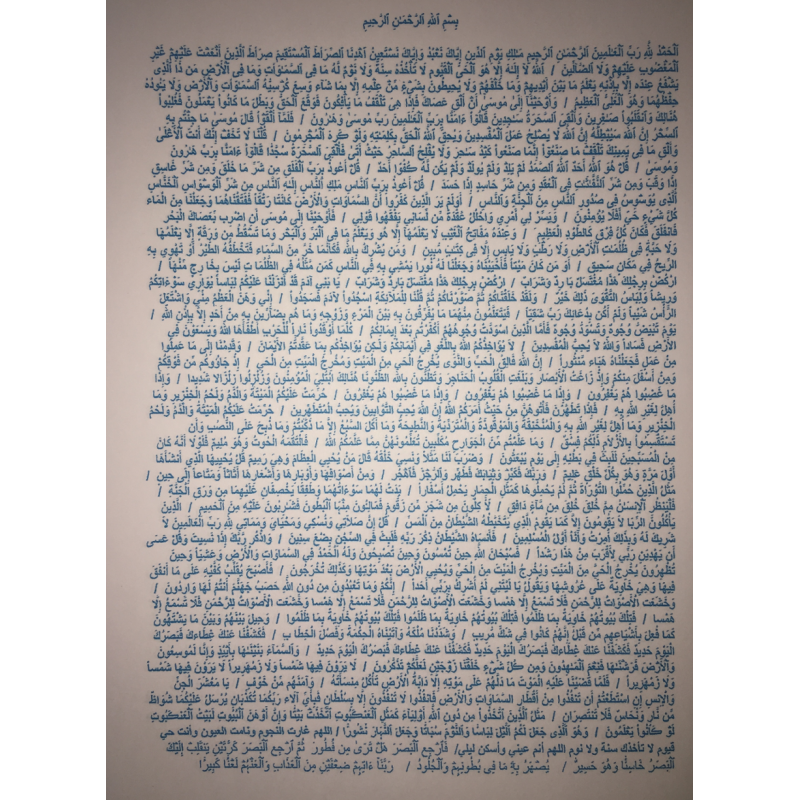 بِسْمِ ٱللَّهِ ٱلرَّحْمَٰنِ ٱلرَّحِيمِ
ٱلْحَمْدُ لِلَّهِ رَبِّ ٱلْعَالَمِينَ ٱلرَّحْمَٰنِ ٱلرَّحِيمِ مَٰلِكِ يَوْمِ ٱلدِّينِ إِيَّاكَ نَعْبُدُ وَإِيَّاكَ نَسْتَعِينُ ٱهْدِنَا ٱلصِّرَاطَ ٱلْمُسْتَقِيمَ صِرَاطَ ٱلَّذِينَ أَنْعَمْتَ عَلَيْهِمْ غَيْرِ
ٱلْمَغْضُوبِ عَلَيْهِمْ وَلَا ٱلضَّالِّينَ / ٱللَّهُ لَا إِلَٰهَ إِلَّا هُوَ ٱلْحَيُّ ٱلْقَيُّومُ لَا تَأْخُذُهُ سِنَةٌ وَلَا نَوْمٌ لَهُ مَا فِي ٱلسَّمَاوَاتِ وَمَا فِي ٱلْأَرْضِ مَن ذَا ٱلَّذِي
يَشْفَعُ عِندَهُ إِلَّا بِإِذْنِهِ يَعْلَمُ مَا بَيْنَ أَيْدِيهِمْ وَمَا خَلْفَهُمْ وَلَا يُحِيطُونَ بِشَيْءٍ مِّنْ عِلْمِهِ إِلَّا بِمَا شَاءَ وَسِعَ كُرْسِيُّهُ ٱلسَّمَاوَاتِ وَٱلْأَرْضَ وَلَا يَئُودُهُ
حِفْظُهُمَا وَهُوَ ٱلْعَلِيُّ ٱلْعَظِيمُ / وَأَوْحَيْنَا إِلَىٰ مُوسَىٰ أَنْ أَلْقِ عَصَاكَ فَإِذَا هِيَ تَلْقَفُ مَا يَأْفِكُونَ فَوَقَعَ ٱلْحَقُّ وَبَطَلَ مَا كَانُوا يَعْمَلُونَ فَغُلِبُوا
هُنَالِكَ وَٱنقَلَبُوا صَاغِرِينَ وَأُلْقِيَ ٱلسَّحَرَةُ سَاجِدِينَ قَالُوا ءَامَنَّا بِرَبِّ ٱلْعَالَمِينَ رَبِّ مُوسَىٰ وَهَٰرُونَ / فَلَمَّا أَلْقَوْا قَالَ مُوسَىٰ مَا جِئْتُم بِهِ
ٱلسِّحْرُ إِنَّ ٱللَّهَ سَيُبْطِلُهُ إِنَّ ٱللَّهَ لَا يُصْلِحُ عَمَلَ ٱلْمُفْسِدِينَ وَيُحِقُّ ٱللَّهُ ٱلْحَقَّ بِكَلِمَاتِهِ وَلَوْ كَرِهَ ٱلْمُجْرِمُونَ / قُلْنَا لَا تَخَفْ إِنَّكَ أَنتَ ٱلْأَعْلَىٰ
وَأَلْقِ مَا فِي يَمِينِكَ تَلْقَفْ مَا صَنَعُوا إِنَّمَا صَنَعُوا كَيْدُ سَاحِرٍ وَلَا يُفْلِحُ ٱلسَّاحِرُ حَيْثُ أَتَىٰ فَأُلْقِيَ ٱلسَّحَرَةُ سُجَّدًا قَالُوا ءَامَنَّا بِرَبِّ هَٰرُونَ
وَمُوسَىٰ / قُلْ هُوَ ٱللَّهُ أَحَدٌ ٱللَّهُ ٱلصَّمَدُ لَمْ يَلِدْ وَلَمْ يُولَدْ وَلَمْ يَكُن لَّهُ كُفُوًا أَحَدٌ / قُلْ أَعُوذُ بِرَبِّ ٱلْفَلَقِ مِن شَرِّ مَا خَلَقَ وَمِن شَرِّ غَاسِقٍ
إِذَا وَقَبَ وَمِن شَرِّ ٱلنَّفَّٰثَٰتِ فِي ٱلْعُقَدِ وَمِن شَرِّ حَاسِدٍ إِذَا حَسَدَ / قُلْ أَعُوذُ بِرَبِّ ٱلنَّاسِ مَلِكِ ٱلنَّاسِ إِلَٰهِ ٱلنَّاسِ مِن شَرِّ ٱلْوَسْوَاسِ ٱلْخَنَّاسِ
ٱلَّذِي يُوَسْوِسُ فِي صُدُورِ ٱلنَّاسِ مِنَ ٱلْجِنَّةِ وَٱلنَّاسِ / أَوَلَمْ يَرَ ٱلَّذِينَ كَفَرُوا أَنَّ ٱلسَّمَاوَاتِ وَٱلْأَرْضَ كَانَتَا رَتْقًا فَفَتَقْنَاهُمَا وَجَعَلْنَا مِنَ ٱلْمَاءِ
كُلَّ شَيْءٍ حَيٍّ أَفَلَا يُؤْمِنُونَ / وَيَسِّرْ لِي أَمْرِي وَاحْلُلْ عُقْدَةً مِّن لِّسَانِي يَفْقَهُوا قَوْلِي / فَأَوْحَيْنَا إِلَىٰ مُوسَىٰ أَنِ اضْرِب بِّعَصَاكَ الْبَحْرَ
فَانفَلَقَ فَكَانَ كُلُّ فِرْقٍ كَالطَّوْدِ الْعَظِيمِ / وَعِندَهُ مَفَاتِحُ الْغَيْبِ لَا يَعْلَمُهَا إِلَّا هُوَ وَيَعْلَمُ مَا فِي الْبَرِّ وَالْبَحْرِ وَمَا تَسْقُطُ مِن وَرَقَةٍ إِلَّا يَعْلَمُهَا
وَلَا حَبَّةٍ فِي ظُلُمَاتِ الْأَرْضِ وَلَا رَطْبٍ وَلَا يَابِسٍ إِلَّا فِي كِتَابٍ مُّبِينٍ / وَمَن يُشْرِكْ بِاللَّهِ فَكَأَنَّمَا خَرَّ مِنَ السَّمَاءِ فَتَخْطَفُهُ الطَّيْرُ أَوْ تَهْوِي بِهِ
الرِّيحُ فِي مَكَانٍ سَحِيقٍ / أَوَ مَن كَانَ مَيْتًا فَأَحْيَيْنَاهُ وَجَعَلْنَا لَهُ نُورًا يَمْشِي بِهِ فِي النَّاسِ كَمَن مَّثَلُهُ فِي الظُّلُمَاتِ لَيْسَ بِخَارِجٍ مِّنْهَا /
ارْكُضْ بِرِجْلِكَ هَذَا مُغْتَسَلٌ بَارِدٌ وَشَرَابٌ / ارْكُضْ بِرِجْلِكَ هَذَا مُغْتَسَلٌ بَارِدٌ وَشَرَابٌ / يَا بَنِي آدَمَ قَدْ أَنزَلْنَا عَلَيْكُمْ لِبَاسًا يُوَارِي سَوْءَاتِكُمْ
وَرِيشًا وَلِبَاسُ التَّقْوَىٰ ذَٰلِكَ خَيْرٌ / وَلَقَدْ خَلَقْنَاكُمْ ثُمَّ صَوَّرْنَاكُمْ ثُمَّ قُلْنَا لِلْمَلَائِكَةِ اسْجُدُوا لِآدَمَ فَسَجَدُوا / إِنِّي وَهَنَ الْعَظْمُ مِنِّي وَاشْتَعَلَ
الرَّأْسُ شَيْبًا وَلَمْ أَكُن بِدُعَائِكَ رَبِّ شَقِيًّا / فَيَتَعَلَّمُونَ مِنْهُمَا مَا يُفَرِّقُونَ بِهِ بَيْنَ الْمَرْءِ وَزَوْجِهِ وَمَا هُم بِضَارِّينَ بِهِ مِنْ أَحَدٍ إِلَّا بِإِذْنِ اللَّهِ /
يَوْمَ تَبْيَضُّ وُجُوهٌ وَتَسْوَدُّ وُجُوهٌ فَأَمَّا الَّذِينَ اسْوَدَّتْ وُجُوهُهُمْ أَكَفَرْتُم بَعْدَ إِيمَانِكُمْ / كُلَّمَا أَوْقَدُوا نَارًا لِّلْحَرْبِ أَطْفَأَهَا اللَّهُ وَيَسْعَوْنَ فِي
الْأَرْضِ فَسَادًا وَاللَّهُ لَا يُحِبُّ الْمُفْسِدِينَ / لَا يُؤَاخِذُكُمُ اللَّهُ بِاللَّغْوِ فِي أَيْمَانِكُمْ وَلَٰكِن يُؤَاخِذُكُم بِمَا عَقَّدتُّمُ الْأَيْمَانَ / وَقَدِمْنَا إِلَىٰ مَا عَمِلُوا
مِنْ عَمَلٍ فَجَعَلْنَاهُ هَبَاءً مَّنثُورًا / إِنَّ اللَّهَ فَالِقُ الْحَبِّ وَالنَّوَىٰ يُخْرِجُ الْحَيَّ مِنَ الْمَيِّتِ وَمُخْرِجُ الْمَيِّتِ مِنَ الْحَيِّ / إِذْ جَاءُوكُم مِّن فَوْقِكُمْ
وَمِنْ أَسْفَلَ مِنكُمْ وَإِذْ زَاغَتِ الْأَبْصَارُ وَبَلَغَتِ الْقُلُوبُ الْحَنَاجِرَ وَتَظُنُّونَ بِاللَّهِ الظُّنُونَا هُنَالِكَ ابْتُلِيَ الْمُؤْمِنُونَ وَزُلْزِلُوا زِلْزَالًا شَدِيدًا / وَإِذَا
مَا غَضِبُوا هُمْ يَغْفِرُونَ / وَإِذَا مَا غَضِبُوا هُمْ يَغْفِرُونَ / وَإِذَا مَا غَضِبُوا هُمْ يَغْفِرُونَ / حُرِّمَتْ عَلَيْكُمُ الْمَيْتَةُ وَالدَّمُ وَلَحْمُ الْخِنزِيرِ وَمَا
أُهِلَّ لِغَيْرِ اللَّهِ بِهِ / فَإِذَا تَطَهَّرْنَ فَأْتُوهُنَّ مِنْ حَيْثُ أَمَرَكُمُ اللَّهُ إِنَّ اللَّهَ يُحِبُّ التَّوَّابِينَ وَيُحِبُّ الْمُتَطَهِّرِينَ / حُرِّمَتْ عَلَيْكُمُ الْمَيْتَةُ وَالدَّمُ وَلَحْمُ
الْخِنزِيرِ وَمَا أُهِلَّ لِغَيْرِ اللَّهِ بِهِ وَالْمُنْخَنِقَةُ وَالْمَوْقُوذَةُ وَالْمُتَرَدِّيَةُ وَالنَّطِيحَةُ وَمَا أَكَلَ السَّبُعُ إِلَّا مَا ذَكَّيْتُمْ وَمَا ذُبِحَ عَلَى النُّصُبِ وَأَن
تَسْتَقْسِمُوا بِالْأَزْلَامِ ذَٰلِكُمْ فِسْقٌ / وَمَا عَلَّمْتُم مِّنَ الْجَوَارِحِ مُكَلِّبِينَ تُعَلِّمُونَهُنَّ مِمَّا عَلَّمَكُمُ اللَّهُ / فَالْتَقَمَهُ الْحُوتُ وَهُوَ مُلِيمٌ فَلَوْلَا أَنَّهُ كَانَ
مِنَ الْمُسَبِّحِينَ لَلَبِثَ فِي بَطْنِهِ إِلَىٰ يَوْمِ يُبْعَثُونَ / وَضَرَبَ لَنَا مَثَلًا وَنَسِيَ خَلْقَهُ قَالَ مَن يُحْيِي الْعِظَامَ وَهِيَ رَمِيمٌ قُلْ يُحْيِيهَا الَّذِي أَنشَأَهَا
أَوَّلَ مَرَّةٍ وَهُوَ بِكُلِّ خَلْقٍ عَلِيمٌ / وَرَبَّكَ فَكَبِّرْ وَثِيَابَكَ فَطَهِّرْ وَالرُّجْزَ فَاهْجُرْ / وَمِنْ أَصْوَافِهَا وَأَوْبَارِهَا وَأَشْعَارِهَا أَثَاثًا وَمَتَاعًا إِلَىٰ حِينٍ /
مَثَلُ الَّذِينَ حُمِّلُوا التَّوْرَاةَ ثُمَّ لَمْ يَحْمِلُوهَا كَمَثَلِ الْحِمَارِ يَحْمِلُ أَسْفَارًا / بَدَتْ لَهُمَا سَوْءَاتُهُمَا وَطَفِقَا يَخْصِفَانِ عَلَيْهِمَا مِن وَرَقِ الْجَنَّةِ /
فَلْيَنظُرِ الْإِنسَانُ مِمَّ خُلِقَ خُلِقَ مِن مَّاءٍ دَافِقٍ / لَآكِلُونَ مِن شَجَرٍ مِّن زَقُّومٍ فَمَالِئُونَ مِنْهَا الْبُطُونَ فَشَارِبُونَ عَلَيْهِ مِنَ الْحَمِيمِ / الَّذِينَ
يَأْكُلُونَ الرِّبَا لَا يَقُومُونَ إِلَّا كَمَا يَقُومُ الَّذِي يَتَخَبَّطُهُ الشَّيْطَانُ مِنَ الْمَسِّ / قُلْ إِنَّ صَلَاتِي وَنُسُكِي وَمَحْيَايَ وَمَمَاتِي لِلَّهِ رَبِّ الْعَالَمِينَ لَا
شَرِيكَ لَهُ وَبِذَٰلِكَ أُمِرْتُ وَأَنَا أَوَّلُ الْمُسْلِمِينَ / فَأَنسَاهُ الشَّيْطَانُ ذِكْرَ رَبِّهِ فَلَبِثَ فِي السِّجْنِ بِضْعَ سِنِينَ / وَاذْكُر رَّبَّكَ إِذَا نَسِيتَ وَقُلْ عَسَىٰ
أَن يَهْدِيَنِ رَبِّي لِأَقْرَبَ مِنْ هَٰذَا رَشَدًا / فَسُبْحَانَ اللَّهِ حِينَ تُمْسُونَ وَحِينَ تُصْبِحُونَ وَلَهُ الْحَمْدُ فِي السَّمَاوَاتِ وَالْأَرْضِ وَعَشِيًّا وَحِينَ
تُظْهِرُونَ يُخْرِجُ الْحَيَّ مِنَ الْمَيِّتِ وَيُخْرِجُ الْمَيِّتَ مِنَ الْحَيِّ وَيُحْيِي الْأَرْضَ بَعْدَ مَوْتِهَا وَكَذَٰلِكَ تُخْرَجُونَ / فَأَصْبَحَ يُقَلِّبُ كَفَّيْهِ عَلَىٰ مَا أَنفَقَ
فِيهَا وَهِيَ خَاوِيَةٌ عَلَىٰ عُرُوشِهَا وَيَقُولُ يَا لَيْتَنِي لَمْ أُشْرِكْ بِرَبِّي أَحَدًا / إِنَّكُمْ وَمَا تَعْبُدُونَ مِن دُونِ اللَّهِ حَصَبُ جَهَنَّمَ أَنتُمْ لَهَا وَارِدُونَ /
وَخَشَعَتِ الْأَصْوَاتُ لِلرَّحْمَٰنِ فَلَا تَسْمَعُ إِلَّا هَمْسًا وَخَشَعَتِ الْأَصْوَاتُ لِلرَّحْمَٰنِ فَلَا تَسْمَعُ إِلَّا هَمْسًا وَخَشَعَتِ الْأَصْوَاتُ لِلرَّحْمَٰنِ فَلَا تَسْمَعُ إِلَّا
هَمْسًا / فَتِلْكَ بُيُوتُهُمْ خَاوِيَةً بِمَا ظَلَمُوا فَتِلْكَ بُيُوتُهُمْ خَاوِيَةً بِمَا ظَلَمُوا فَتِلْكَ بُيُوتُهُمْ خَاوِيَةً بِمَا ظَلَمُوا / وَحِيلَ بَيْنَهُمْ وَبَيْنَ مَا يَشْتَهُونَ
كَمَا فُعِلَ بِأَشْيَاعِهِم مِّن قَبْلُ إِنَّهُمْ كَانُوا فِي شَكٍّ مُّرِيبٍ / وَشَدَدْنَا مُلْكَهُ وَآتَيْنَاهُ الْحِكْمَةَ وَفَصْلَ الْخِطَابِ / فَكَشَفْنَا عَنكَ غِطَاءَكَ فَبَصَرُكَ
الْيَوْمَ حَدِيدٌ فَكَشَفْنَا عَنكَ غِطَاءَكَ فَبَصَرُكَ الْيَوْمَ حَدِيدٌ فَكَشَفْنَا عَنكَ غِطَاءَكَ فَبَصَرُكَ الْيَوْمَ حَدِيدٌ / وَٱلسَّمَاءَ بَنَيْنَٰهَا بِأَيْيْدٍ وَإِنَّا لَمُوسِعُونَ
وَٱلْأَرْضَ فَرَشْنَٰهَا فَنِعْمَ ٱلْمَٰهِدُونَ وَمِن كُلِّ شَيْءٍ خَلَقْنَا زَوْجَيْنِ لَعَلَّكُمْ تَذَكَّرُونَ / لَا يَرَوْنَ فِيهَا شَمْسًا وَلَا زَمْهَرِيرًا لَا يَرَوْنَ فِيهَا شَمْسًا
وَلَا زَمْهَرِيرًا / فَلَمَّا قَضَيْنَا عَلَيْهِ الْمَوْتَ مَا دَلَّهُمْ عَلَىٰ مَوْتِهِ إِلَّا دَابَّةُ الْأَرْضِ تَأْكُلُ مِنسَأَتَهُ / وَآمَنَهُم مِّنْ خَوْفٍ / يَا مَعْشَرَ الْجِنِّ
وَالْإِنسِ إِنِ اسْتَطَعْتُمْ أَن تَنفُذُوا مِنْ أَقْطَارِ السَّمَاوَاتِ وَالْأَرْضِ فَانفُذُوا لَا تَنفُذُونَ إِلَّا بِسُلْطَانٍ فَبِأَيِّ آلَاءِ رَبِّكُمَا تُكَذِّبَانِ يُرْسَلُ عَلَيْكُمَا شُوَاظٌ
مِّن نَّارٍ وَنُحَاسٌ فَلَا تَنتَصِرَانِ / مَثَلُ الَّذِينَ اتَّخَذُوا مِن دُونِ اللَّهِ أَوْلِيَاءَ كَمَثَلِ الْعَنكَبُوتِ اتَّخَذَتْ بَيْتًا وَإِنَّ أَوْهَنَ الْبُيُوتِ لَبَيْتُ الْعَنكَبُوتِ
لَوْ كَانُوا يَعْلَمُونَ / وَهُوَ الَّذِي جَعَلَ لَكُمُ اللَّيْلَ لِبَاسًا وَالنَّوْمَ سُبَاتًا وَجَعَلَ النَّهَارَ نُشُورًا / اللهم غارت النجوم ونامت العيون وأنت حي
قيوم لا تأخذك سنة ولا نوم اللهم أنم عيني وأسكن ليلي/ فَٱرْجِعِ ٱلْبَصَرَ هَلْ تَرَىٰ مِن فُطُورٍ ثُمَّ ٱرْجِعِ ٱلْبَصَرَ كَرَّتَيْنِ يَنقَلِبْ إِلَيْكَ
ٱلْبَصَرُ خَاسِئًا وَهُوَ حَسِيرٌ / يُصْهَرُ بِهِ مَا فِي بُطُونِهِمْ وَالْجُلُودُ / رَبَّنَا ءَاتِهِمْ ضِعْفَيْنِ مِنَ ٱلْعَذَابِ وَٱلْعَنْهُمْ لَعْنًا كَبِيرًا